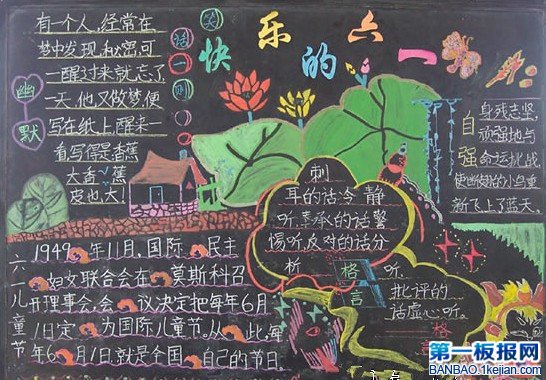 快乐的六一
笑话一则
幽默
有一个人,经常在
梦中发现秘密,可
一醒过来就忘了
一天,他又做梦,便
写在纸上,醒来一
看,写得是香蕉
大香蕉
皮也大!
自强
身残志坚,
顽强地与
命运挑战
新飞上了蓝天。
刺
耳的话冷静
听,奉承的话警
惕听,反对的话分
析听,
批评的
话虚心听。
格言
格言
六一儿童节
1949年11月,国际民主
妇女联合会在莫斯科召
开理事会,会议决定把每年6月
1日定为国际儿童节。从此,每
年6月1日就是全国自己的节日。
第一板报网
BANBAO.1kejian.com